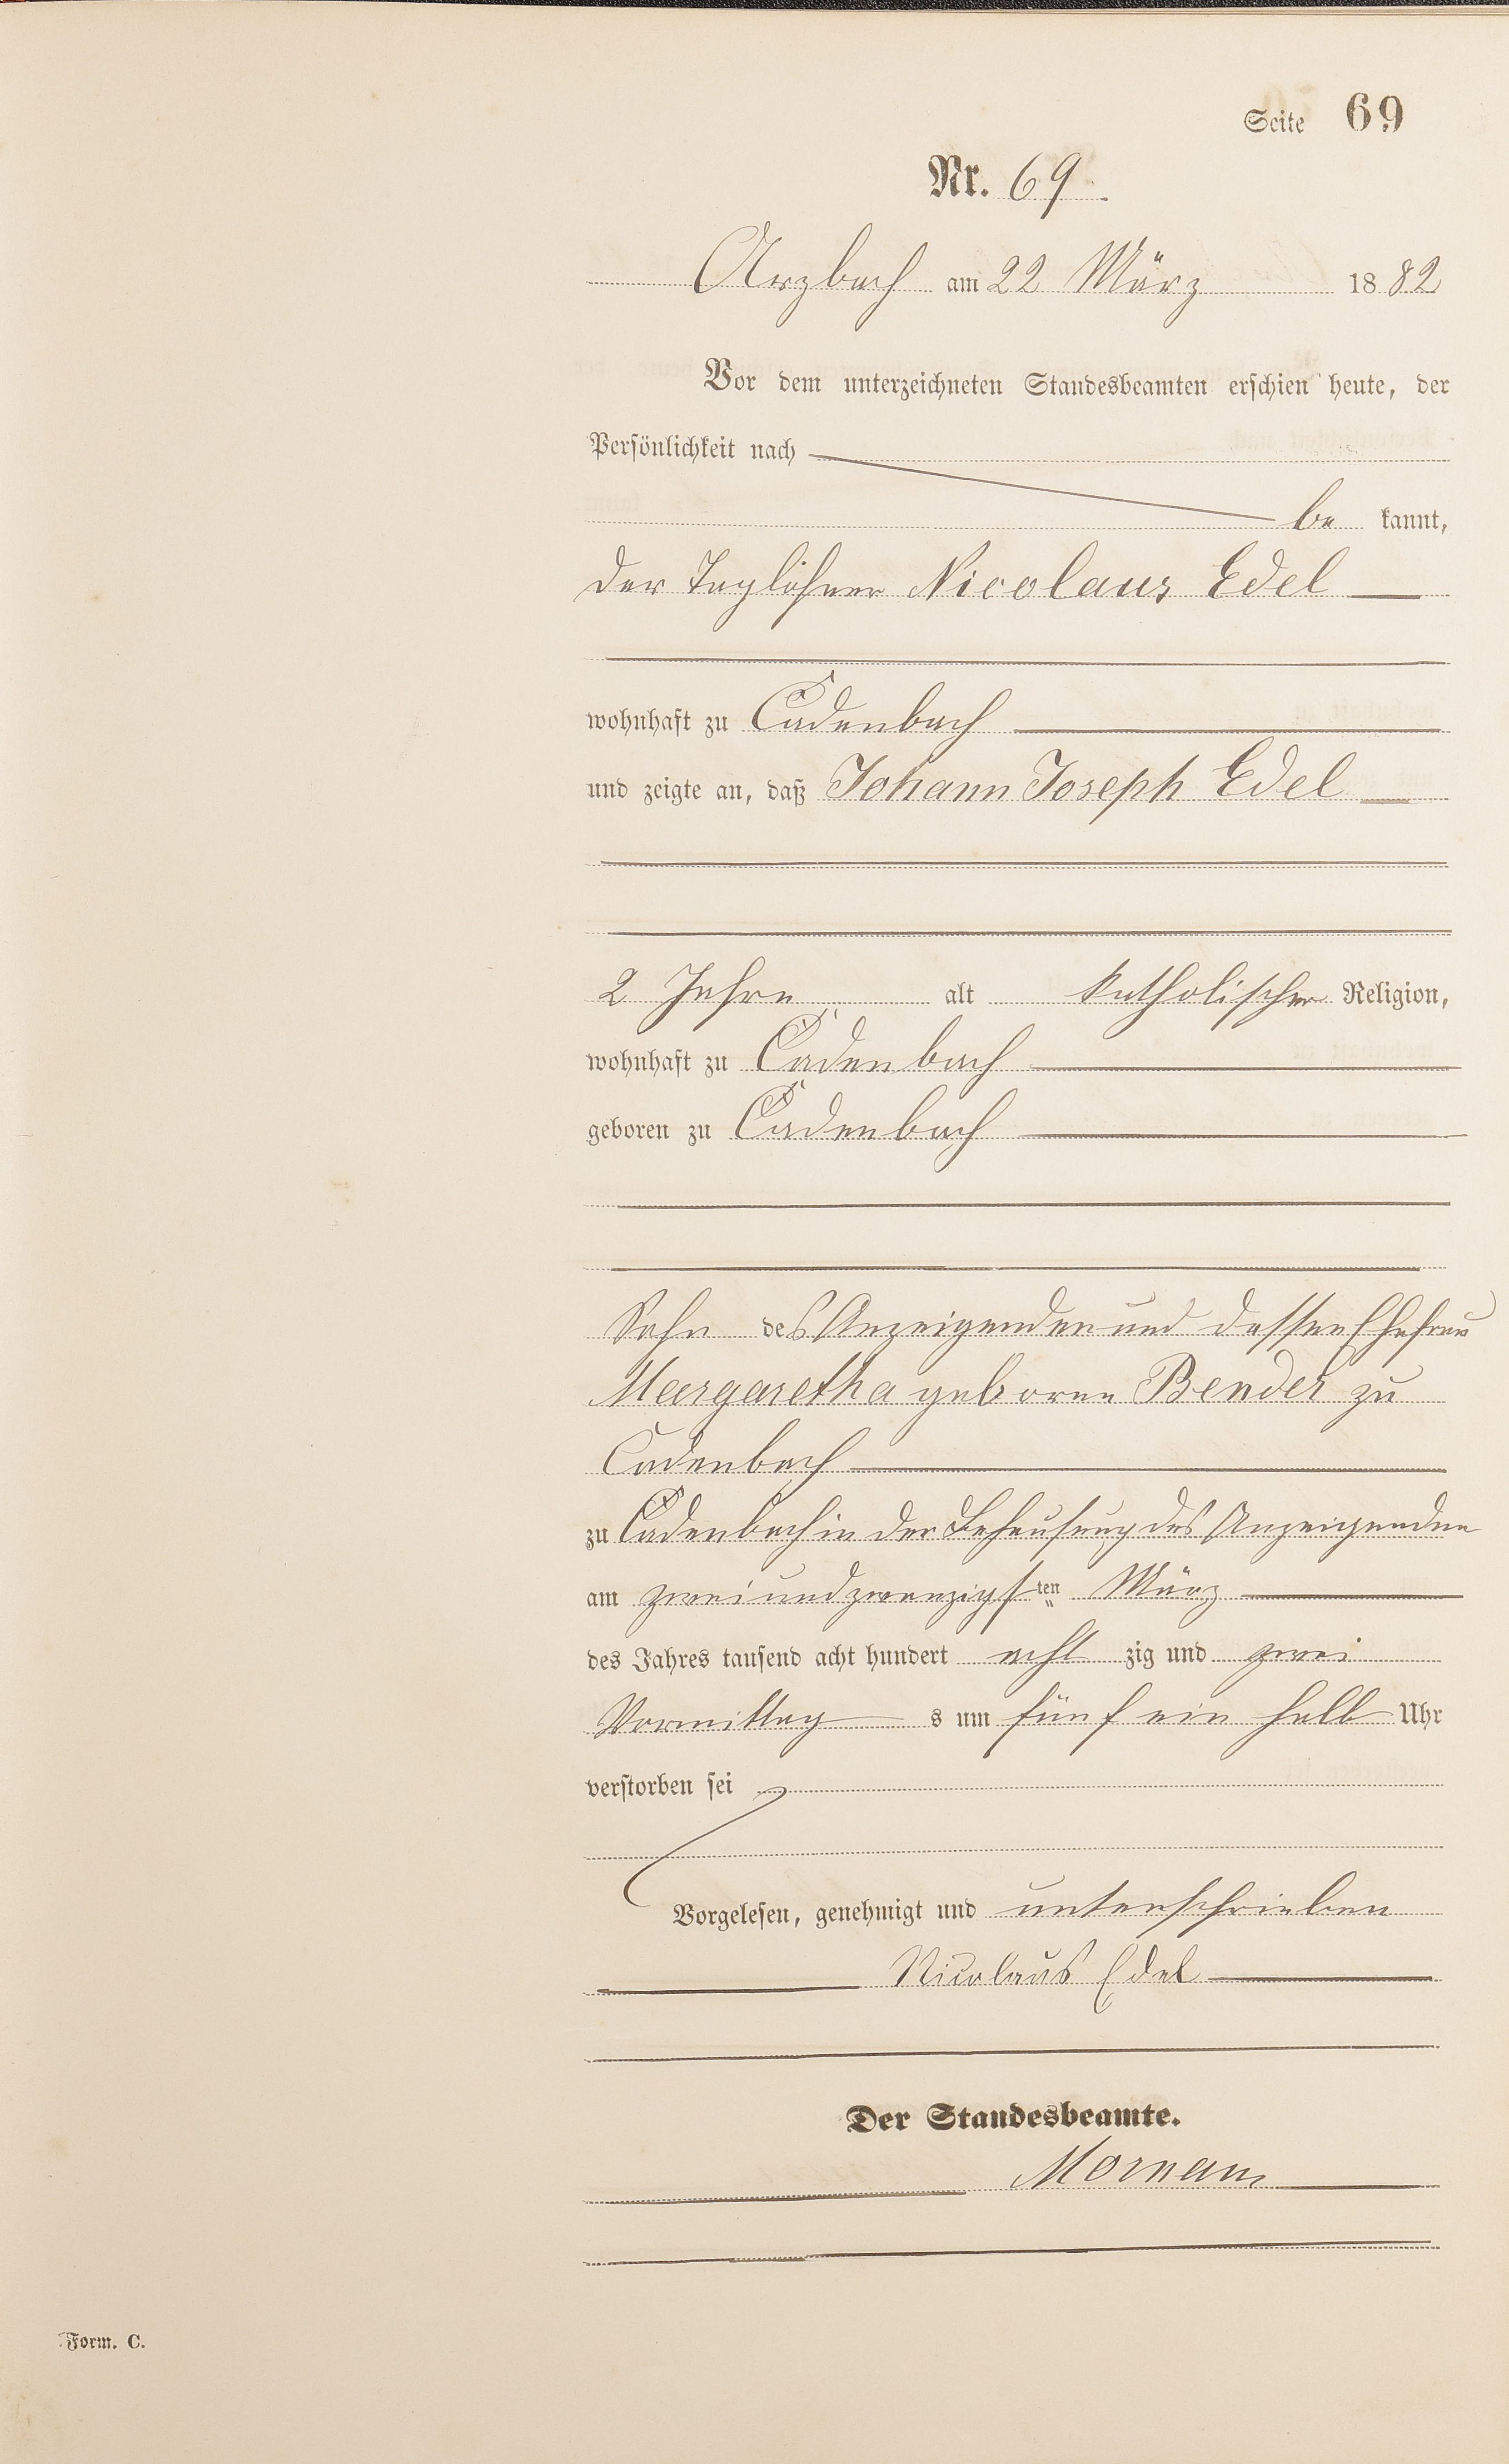 Seite 69
Nr. 69.
Arzbach am 22 März 1882
Vor dem unterzeichneten Standesbeamten erschien heute, der
Persönlichkeit nach
be kannt,
der Taglöhner Nicolaus Edel
wohnhaft zu Cadenbach
und zeigte an, daß Johann Joseph Edel
2 Jahre alt katholischer Religion,
wohnhaft zu Cadenbach
geboren zu Cadenbach
Sohn des Anzeigenden und dessen Ehefrau
Margaretha geborne Bender zu
Cadenbach
zu Cadenbach in der Behausung des Anzeigenden
am zweiundzwanzigsten März
des Jahres tausend acht hundert acht zig und zwei
Vormittag s um fünf ein halb Uhr
verstorben sei
Vorgelesen, genehmigt und unterschrieben
Nicolaus Edel
Der Standesbeamte.
Form. C.